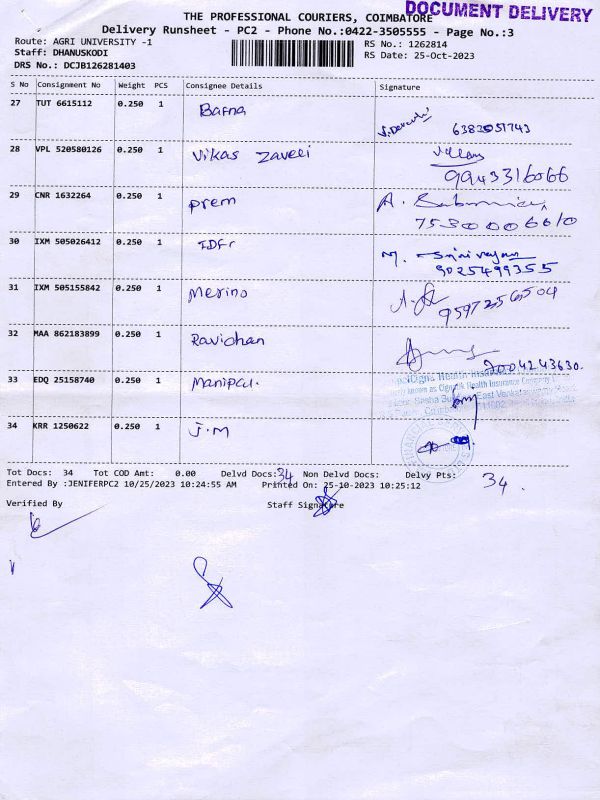 THE PROFESSIONAL COURIERS, COIMBATORE
DOCUMENT DELIVERY
Delivery Runsheet - PC2 - Phone No.:0422-3505555 - Page No.:3
Route: AGRI UNIVERSITY -1
RS No.: 1262814
Staff: DHANUSKODI
RS Date: 25-Oct-2023
DRS No.: DCJB126281403
S No Consignment No Weight PCS Consignee Details Signature
27 TUT 6615112 0.250 1 Bafna
6382051743
28 VPL 520580126 0.250 1 Vikas Zaveri
9943316066
29 CNR 1632264 0.250 1 prem
75300006610
30 IXM 505026412 0.250 1 IDFC
9025499355
31 IXM 505155842 0.250 1 Merino
9597256504
32 MAA 862183899 0.250 1 Ravichan
33 EDQ 25158740 0.250 1 Manipal.
34 KRR 1250622 0.250 1 J.M
Tot Docs: 34 Tot COD Amt: 0.00 Delvd Docs: 34 Non Delvd Docs: Delvy Pts: 34.
Entered By :JENIFERPC2 10/25/2023 10:24:55 AM Printed On: 25-10-2023 10:25:12
Verified By Staff Signature